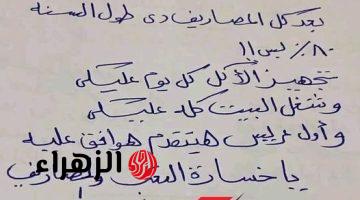 بعد كل المصاريف دى طول السنه
٨٠٪ بس !!
تجهيز الأكل كل يوم عليكى
وشغل البيت كله عليكى
وأول عريس هيتقدم هوافق عليه
يا خسارة التعب والمصاريف
الزهراء